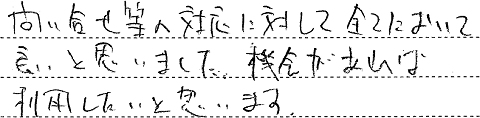 問い合せ等の対応に対して全てにおいて
良いと思いました。機会があれば
利用したいと思います。